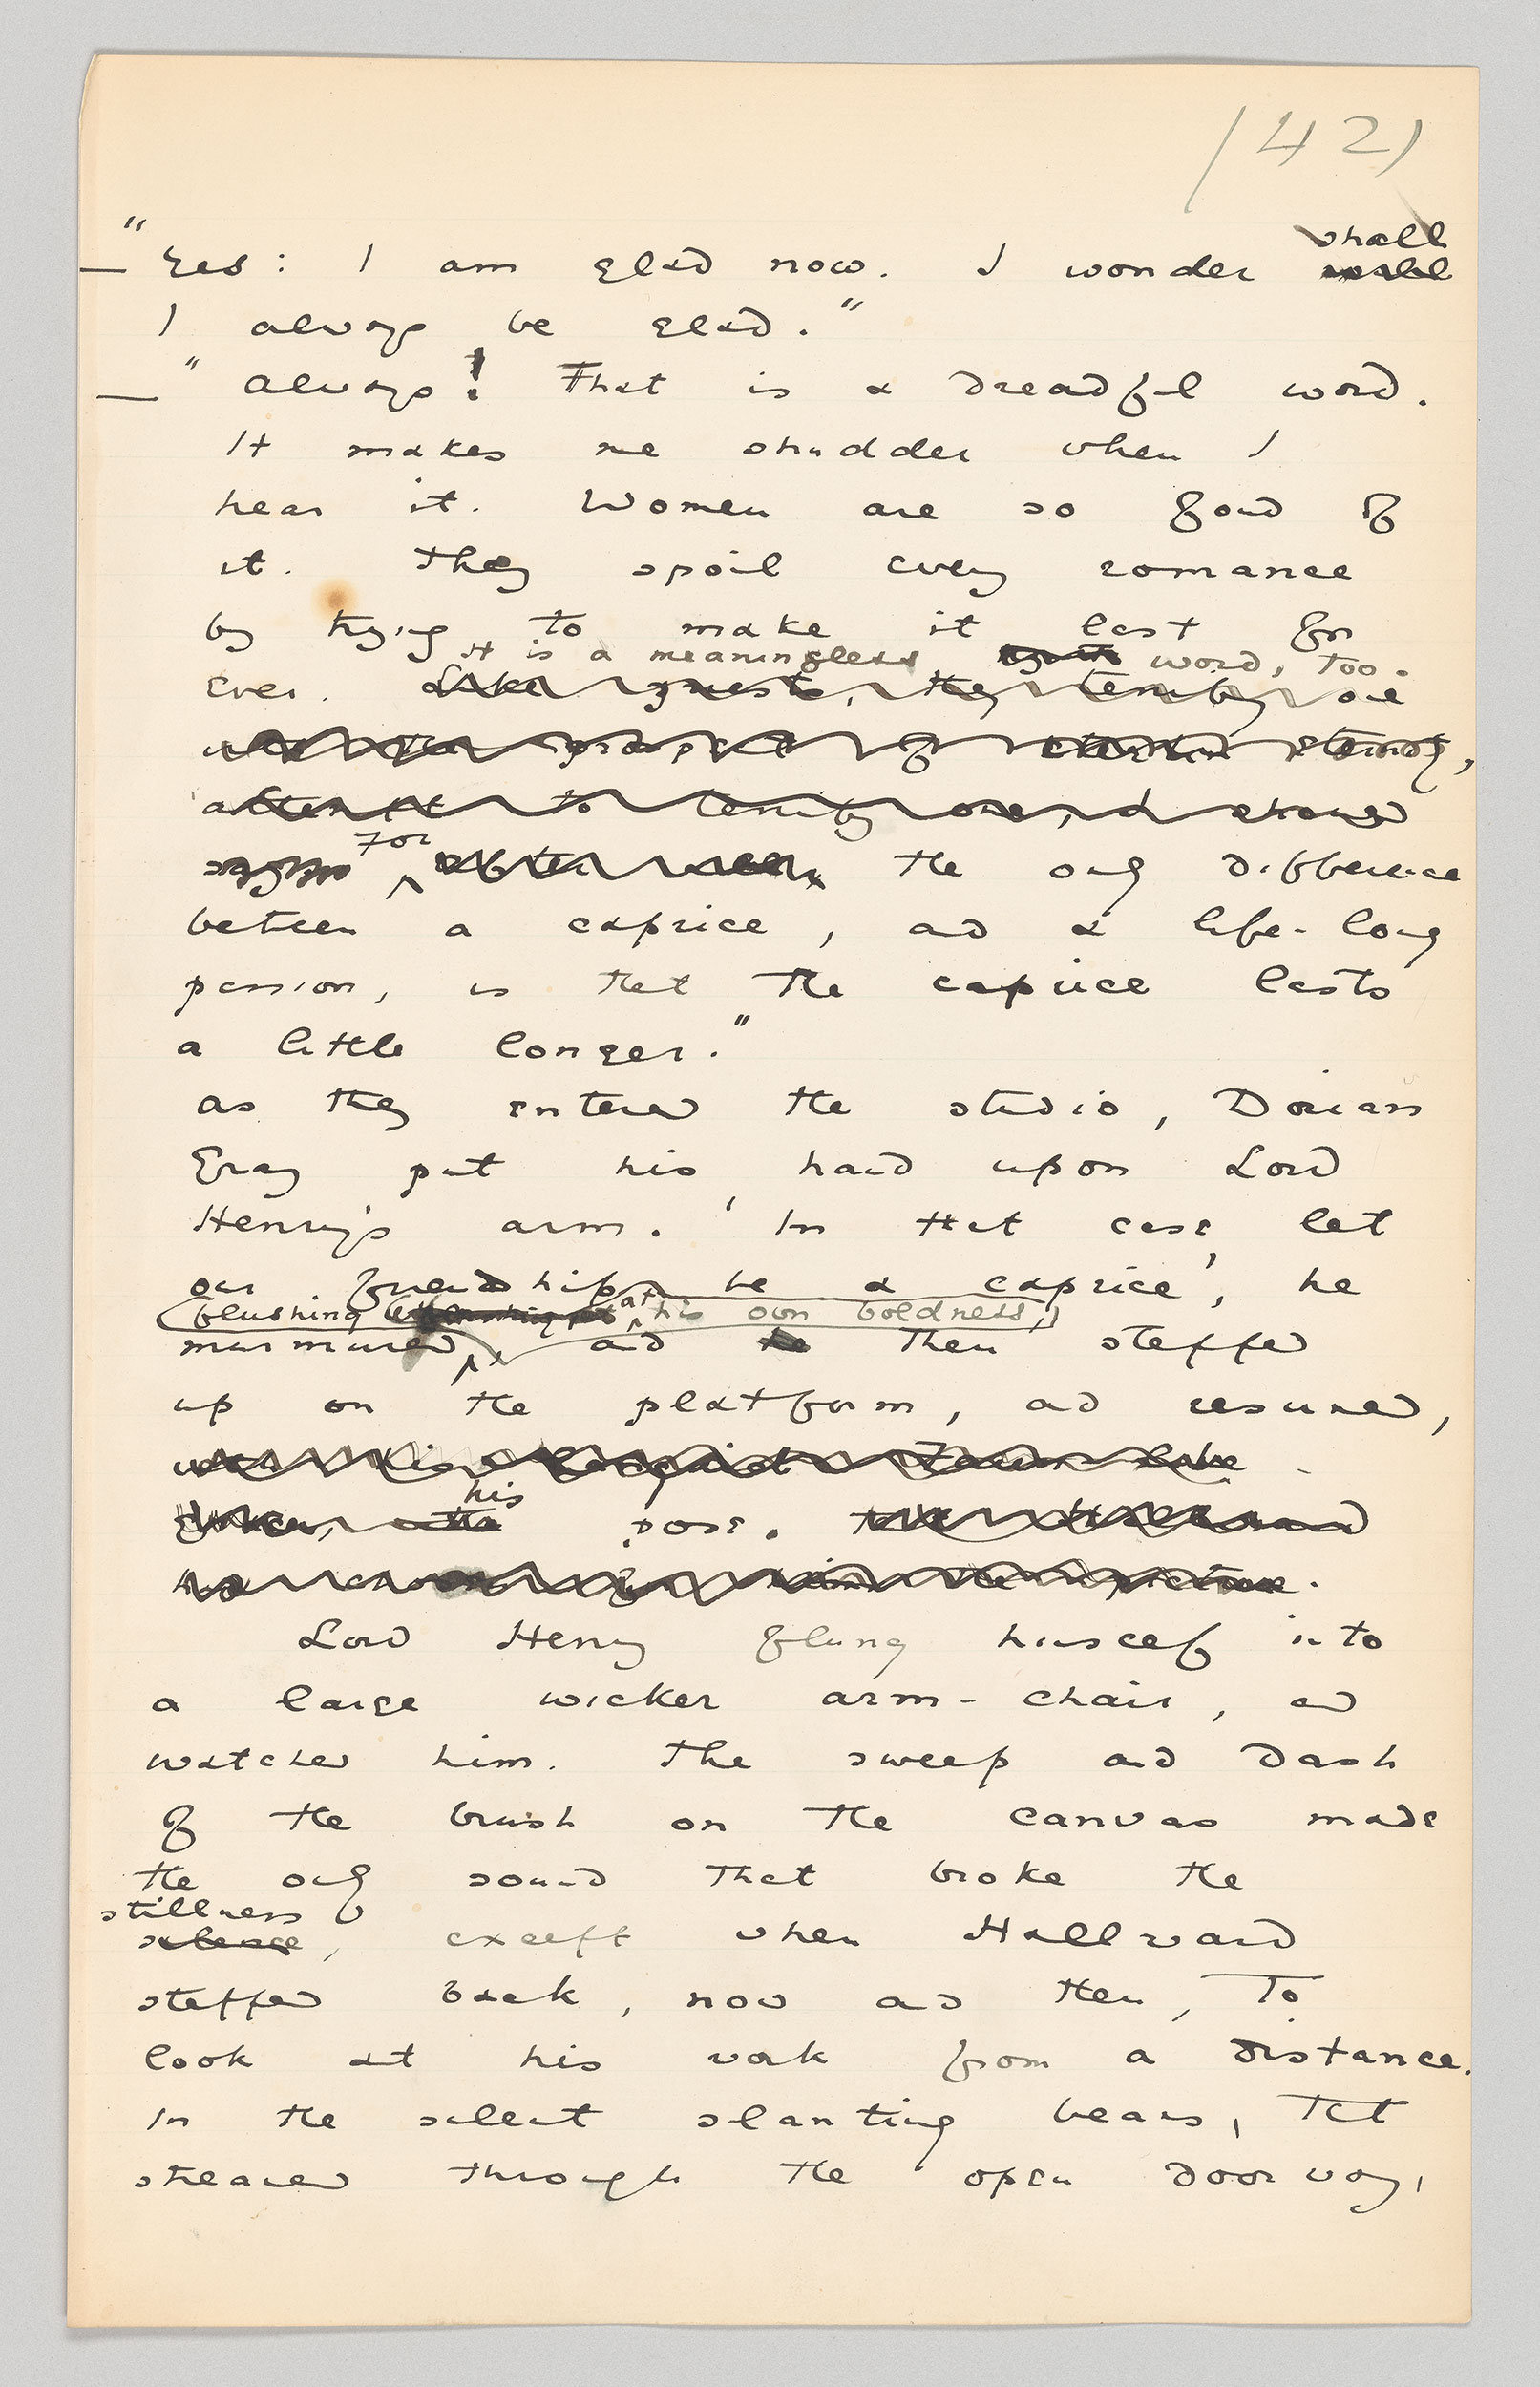 (42)
shall
— "Yes: I am glad now. I wonder
I always be glad."
— "Always! That is a dreadful word.
It makes me shudder when I
hear it. Women are so fond of
it. They spoil every romance
by trying to make it last for
It is a meaningless word, too.
ever. Like priests, they terrify one
prospect of eternity,
attempt to terrify one,
For
the only difference
between a caprice, and a life-long
passion, is that the caprice lasts
a little longer."
As they entered the studio, Dorian
Gray put his hand upon Lord
Henry's arm. 'In that case, let
our friendship be a caprice', he
blushing at his own boldness,
murmured, and he then stepped
up on the platform, and resumed,
his
the pose.
him the picture.
Lord Henry flung himself into
a large wicker arm-chair, and
watched him. The sweep and dash
of the brush on the canvas made
the only sound that broke the
stillness
silence, except when Hallward
stepped back, now and then, to
look at his work from a distance.
In the silent slanting beams, that
streamed through the open doorway,